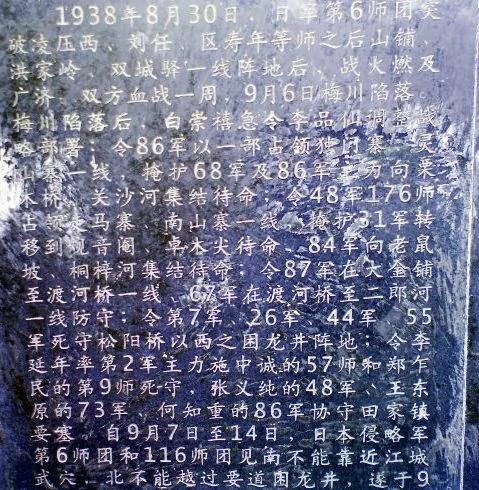 1938年8月30日，日军第6师团突
破凌压西、刘任、区寿年等师之后山铺、
洪家岭、双城驿一线阵地后，战火燃及
广济。双方血战一周，9月6日梅川陷落。
梅川陷落后，白崇禧急令李品仙调整战
略部署：令86军以一部占领独山寨、灵
山寨一线，掩护68军及86军主力向栗
木桥、关沙河集结待命，令48军176师
占领走马寨、南山寨一线，掩护31军转
移到观音阁、卓木尖待命，84军向老鼠
坡、桐梓河集结待命；令87军在大金铺
至渡河桥一线、67军在渡河桥至二郎河
一线防守；令第7军、26军、44军、55
军死守松阳桥以西之困龙井阵地；令李
延年率第2军主力施中诚的57师和郑乍
民的第9师死守，张义纯的48军、王东
原的73军、何知重的86军协守田家镇
要塞。自9月7日至14日，日本侵略军
第6师团和116师团见南不能靠近江城
武穴，北不能越过要道困龙井，遂于9